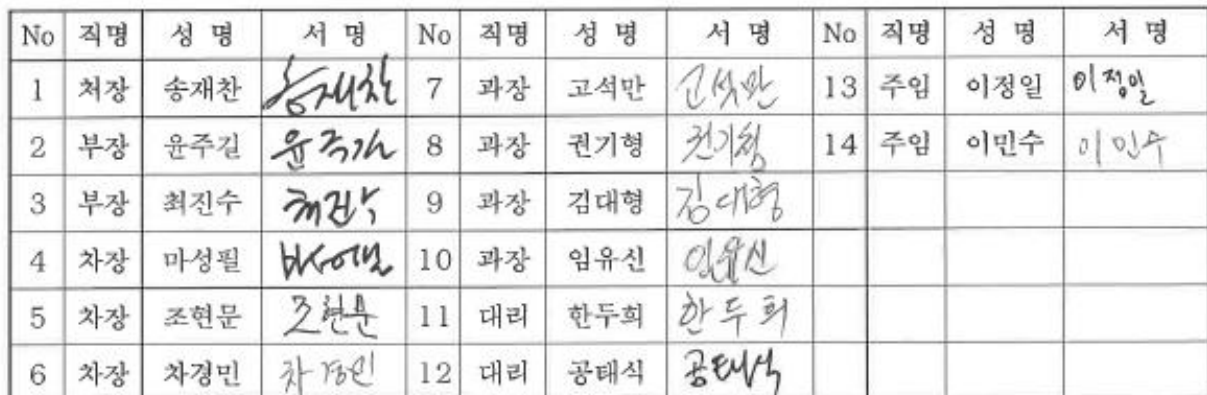 No 직명 성 명 서 명 No 직명 성 명 서 명 No 직명 성 명 서 명
1 처장 송재찬 송재찬 7 과장 고석만 고석만 13 주임 이정일 이정일
2 부장 윤주길 윤주길 8 과장 권기형 권기형 14 주임 이민수 이민수
3 부장 최진수 최진수 9 과장 김대형 김대형
4 차장 마성필 마성필 10 과장 임유신 임유신
5 차장 조현문 조현문 11 대리 한두희 한두희
6 차장 차경민 차경민 12 대리 공태식 공태식